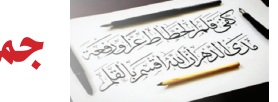 جم
كفى قلم الخطاط عزا ورفعة
مدى الدهر أن الله أقسم بالقلم